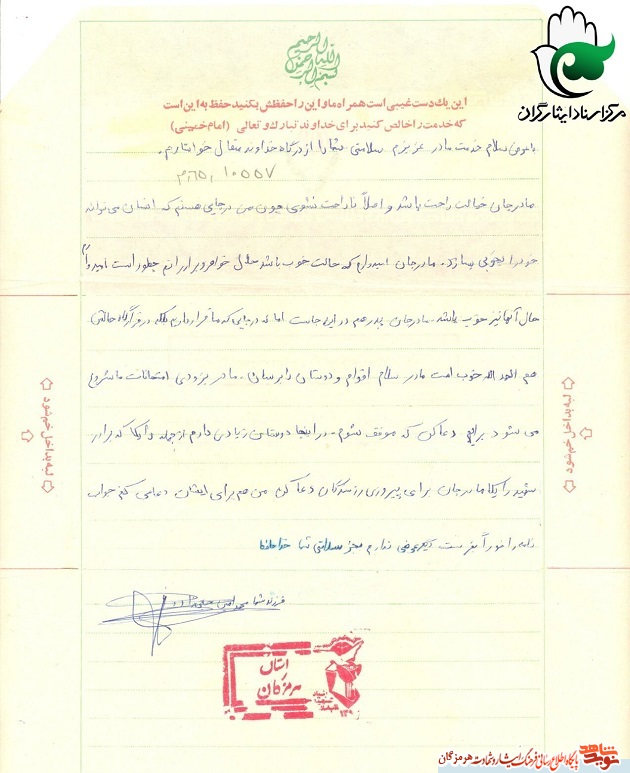 بسم الله الرحمن الرحیم
مرکز اسناد ایثارگران
این یک دست غیبی است همراه ما و این را حفظش بکنید حفظ به این است
که خدمت را خالص کنید برای خداوند تبارک و تعالی (امام خمینی)
با عرض سلام خدمت مادر عزیزم سلامتی شما را از درگاه خداوند متعال خواستارم.
مادر جان خیالت راحت باشد و اصلاً ناراحت نشوی چون من در جایی هستم که انسان می تواند
خود را بخوبی بسازد. مادر جان امیدوارم که حالت خوب باشد حال خواهر و برادرانم چطور است امیدوارم
حال آنها نیز خوب باشد. مادر جان پدر هم در این جاست اما نه در جایی که ما قرار داریم بلکه در قرارگاه حالش
هم الحمد الله خوب است مادر سلام اقوام و دوستان را برسان. مادر بزودی امتحانات ما شروع
می شود برایم دعا کن که موفق شوم. در اینجا دوستان زیادی دارم از جمله که برادر
شهید مادر جان برای پیروزی رزمندگان دعا کن من هم برای ایشان دعا می کنم جواب
نامه را فوراً بفرست دیگر عرضی ندارم بجز سلامتی شما خداحافظ
فرزند شما
استان
هرمزگان
لبه بداخل خم شود
لبه بداخل خم شود
نوید شاهد
پایگاه اطلاع رسانی فرهنگ ایثار و شهادت هرمزگان